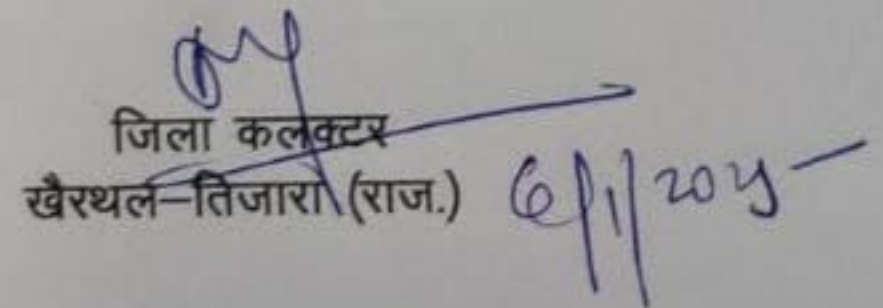 जिला कलेक्टर
खैरथल-तिजारा (राज.) 6/1/2025